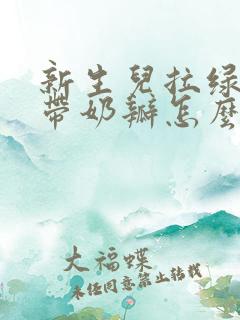 新生兒拉绿
帶奶辦怎麼
大福蝶
未经同意禁止转载